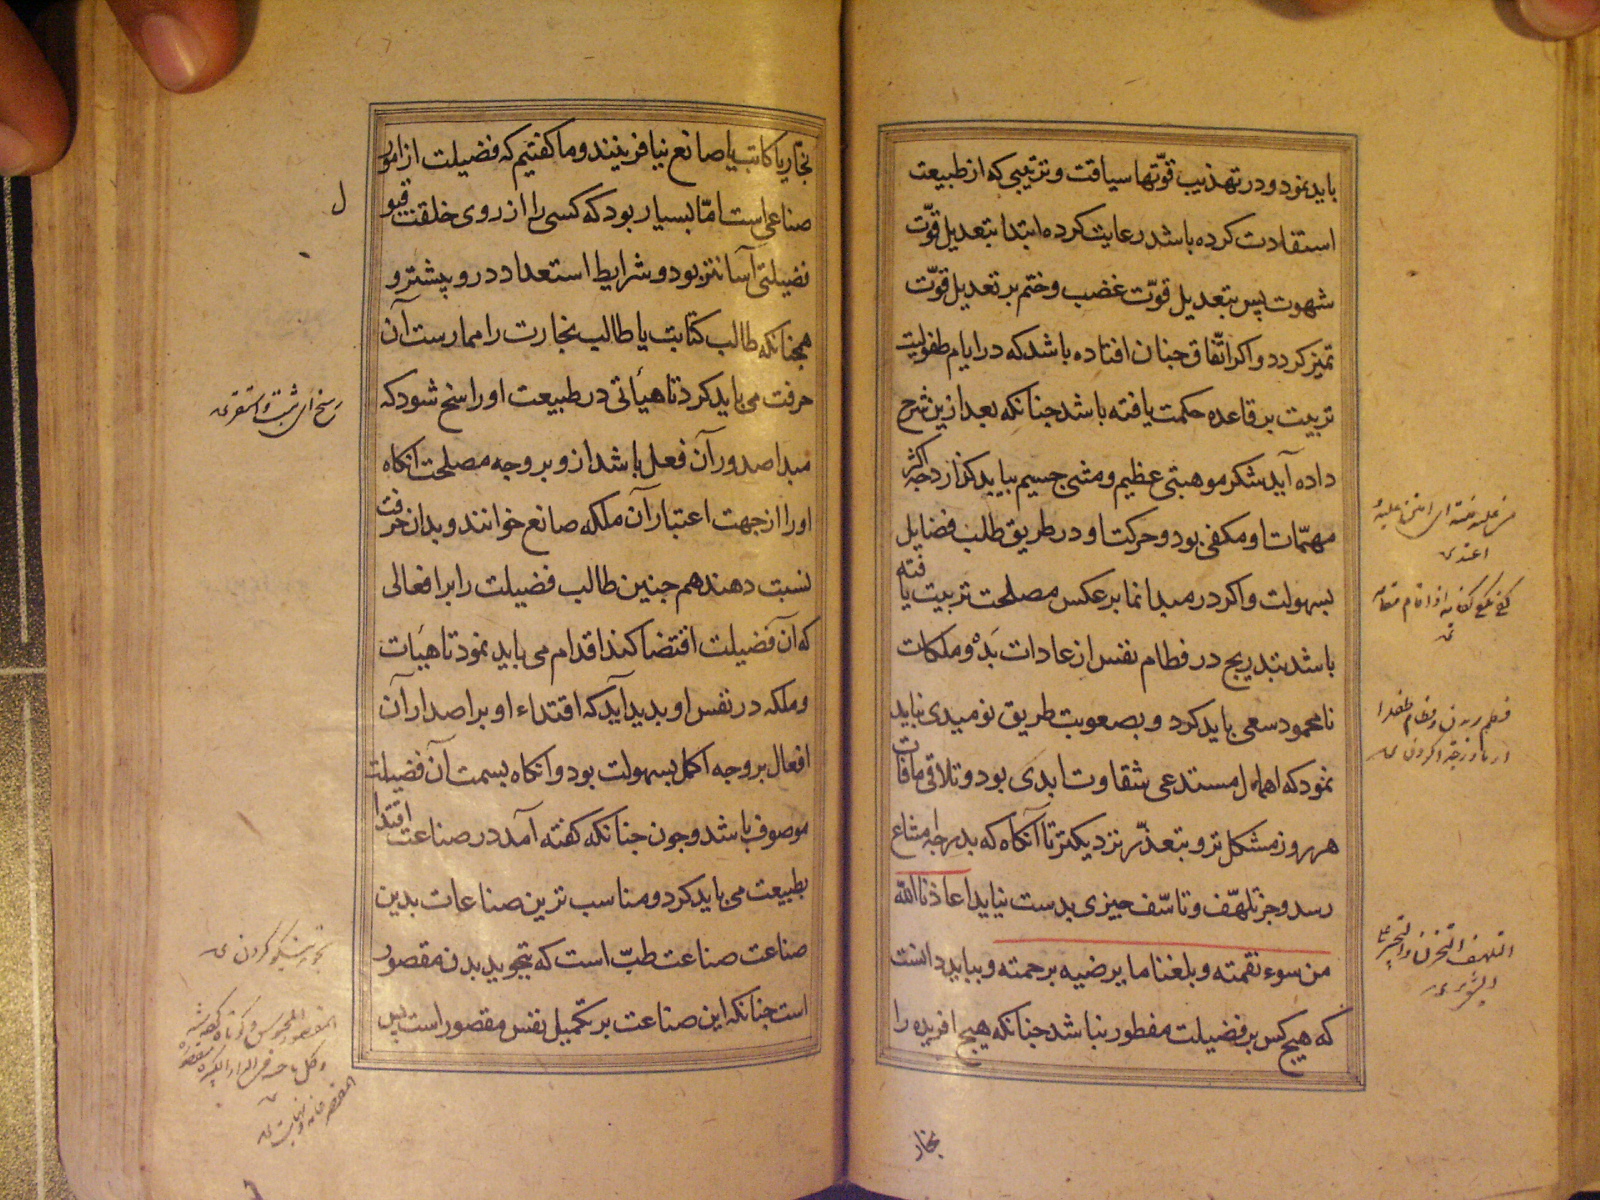 باید نمود و در تهذیب قوّتها سیاقت و ترتیبی که از طبیعت
استفادت کرده باشد رعایت کرده ابتدا بتعدیل قوّت
شهوت پس بتعدیل قوّت غضب و ختم بر تعدیل قوّت
تمیز کردد و اکر اتّفاق جنان افتاده باشد که در ایام طفولیت
تربیت بر قاعده حکمت یافته باشد جنانکه بعد ازین شرح
داده آید شکر موهبتی عظیم و منتی جسیم بباید کزارد جه اکثر
مهمّات او مکفی بود و حرکت او در طریق طلب فضایل
بسهولت و اکر در مبدا نما بر عکس مصلحت تربیت یافته
باشد بتدریج در فطام نفس از عادات بَدْ و ملکات
نامحمود سعی باید کرد و بصعوبت طریق نومیدی نباید
نمود که اهمال مستدعی شقاوت ابدی بود و تلافی مافات
هر روز مشکل تر و بتعذّر نزدیکتر تا آنکاه که بدرجه امتناع
رسد و جز تلهّف و تاسّف جیزی بدست نیاید اعاذنا الله
من سوء نقمته و بلغنا ما یرضیه برحمته و بباید دانست
که هیج کس بر فضیلت مفطور نباشد جنانکه هیج افریده را
نجار
نجار یا کاتب یا صانع نیافرینند و ما کفتیم که فضیلت از امور
صناعی است امّا بسیار بود که کسی را از روی خلقت قبو
فضیلتی آسانتر بود و شرایط استعداد درو بیشتر و
همجنانکه طالب کتابت یا طالب نجارت را ممارست آن
حرفت می باید کرد تا هیأتی در طبیعت او راسخ شود که
مبدا صدور آن فعل باشد ازو بر وجه مصلحت آنکاه
او را از جهت اعتبار آن ملکه صانع خوانند و بدان حرفت
نسبت دهند هم جنین طالب فضیلت را بر افعالی
که آن فضیلت اقتضا کند اقدام می باید نمود تا هیأت
و ملکه در نفس او بدید آید که اقتداء او بر اصدار آن
افعال بر وجه اکمل بسهولت بود و انکاه بسمت آن فضیلت
موصوف باشد و جون جنانکه کفته آمد در صناعت اقتدا
بطبیعت می باید کرد و مناسب ترین صناعات بدین
صناعت صناعت طبّ است که بتجوید بدن مقصور
است جنانکه این صناعت بر تکمیل نفس مقصور است بس
ل